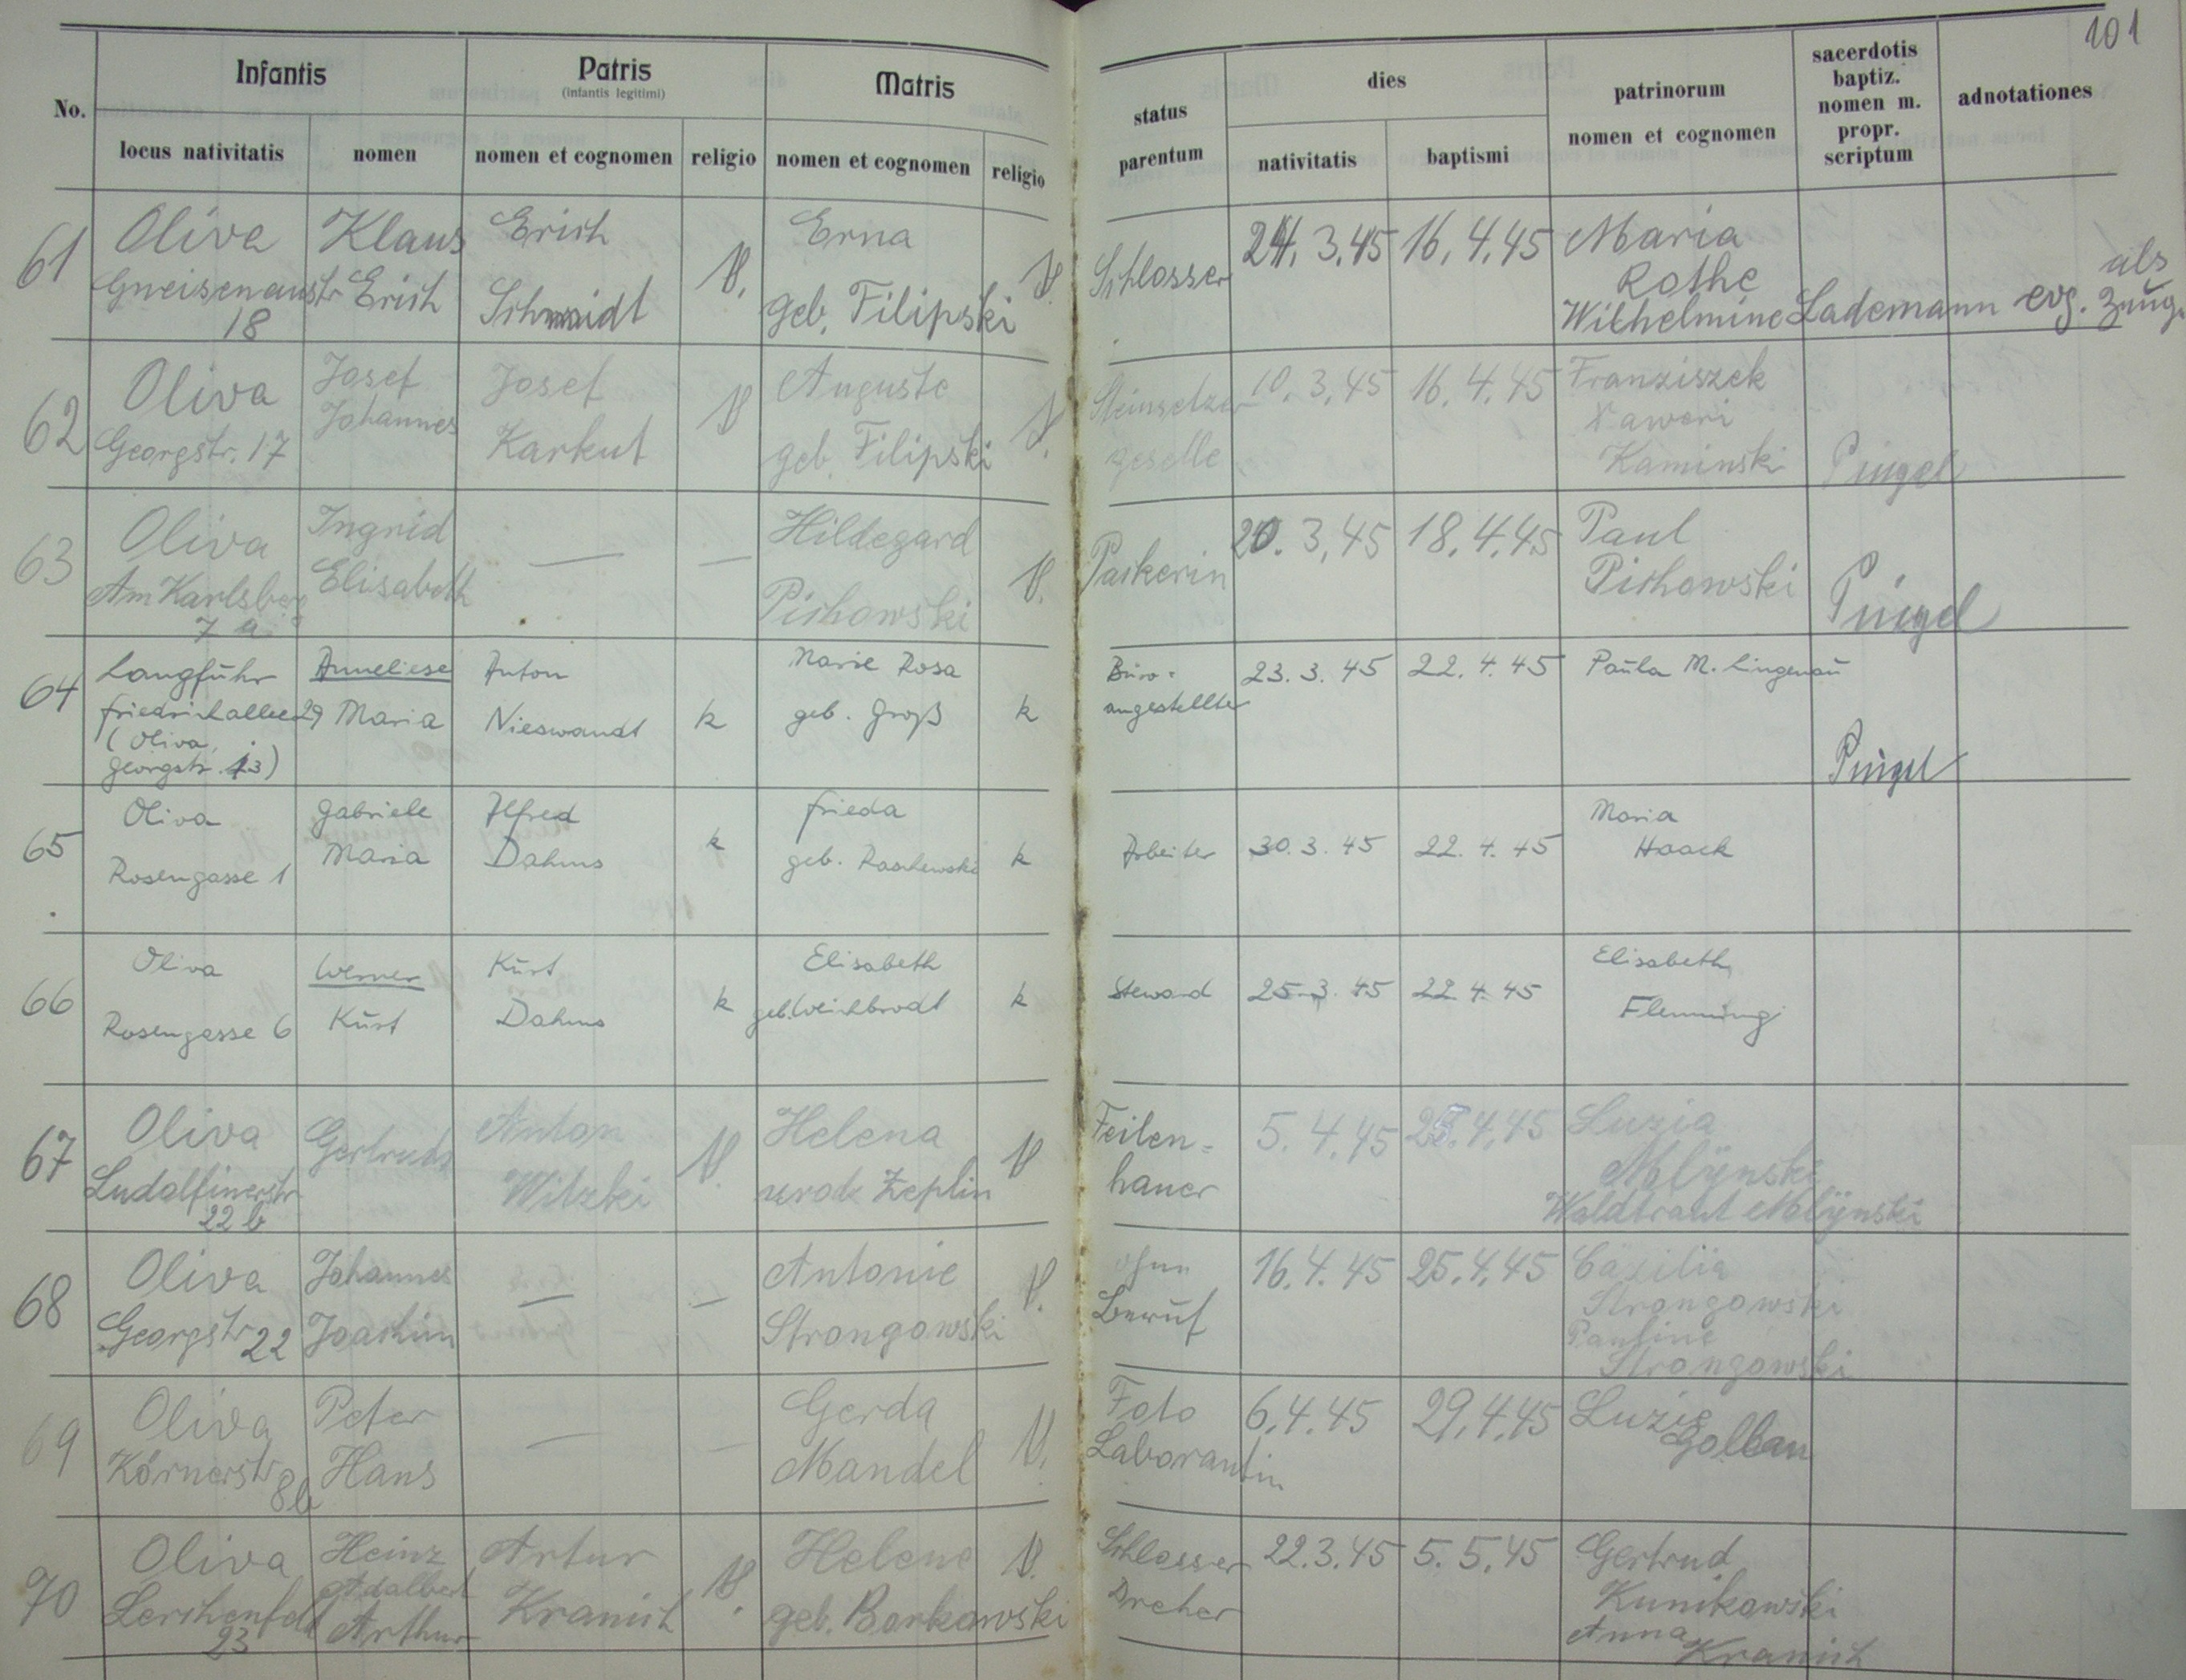 101
No.
Infantis
Patris
(infantis legitimi)
Matris
status parentum
dies
patrinorum
nomen et cognomen
sacerdotis
baptiz.
nomen m.
propr.
scriptum
adnotationes
locus nativitatis
nomen
nomen et cognomen
religio
nomen et cognomen
religio
nativitatis
baptismi
61
Oliva
Gneisenaustr
18
Klaus
Erich
Erich
Schmidt
Erna
geb. Filipski
Schlosser
24. 3. 45
16. 4. 45
Maria
Rothe
Wilhelmine Lademann evg. als Zeug.
62
Oliva
Georgstr. 17
Josef
Johannes
Josef
Karkut
Auguste
geb. Filipski
Steinsetzer
geselle
10. 3. 45
16. 4. 45
Franziszek
Kaminski
Pingel
63
Oliva
Am Karlsberg
7 a
Ingrid
Elisabeth
—
—
Hildegard
Pichowski
Packerin
20. 3. 45
18. 4. 45
Paul
Pichowski
Pingel
64
Langfuhr
Friedrichallee 29
(Oliva,
Georgstr. 13)
Anneliese
Maria
Anton
Nieswandt
k
Marie Rosa
geb. Groß
k
Büro-
angestellter
23. 3. 45
22. 4. 45
Paula M. Lingenau
Pingel
65
Oliva
Rosengasse 1
Gabriele
Maria
Alfred
Dahms
k
Frieda
geb. Raschewski
k
Arbeiter
30. 3. 45
22. 4. 45
Maria
Haack
66
Oliva
Rosengasse 6
Werner
Kurt
Kurt
Dahms
k
Elisabeth
geb. Weichbrodt
k
Steward
25. 3. 45
22. 4. 45
Elisabeth
Flemming
67
Oliva
Ludolfinerstr
22 b
Gertruda
Anton
Witzki
Helena
urodz Zeplin
Feilen=
hauer
5. 4. 45
25. 4. 45
Luzia
Mlÿnski
Waldtraut Mlÿnski
68
Oliva
Georgstr 22
Johannes
Joachim
—
—
Antonie
Strongowski
ohne
Beruf
16. 4. 45
25. 4. 45
Cäzilia
Strongowski
Pauline
Strongowski
69
Oliva
Körnerstr 8b
Peter
Hans
—
—
Gerda
Mandel
Foto
Laborantin
6. 4. 45
29. 4. 45
Luzie
Gollan
70
Oliva
Lerchenfeld
23
Heinz
Adalbert
Arthur
Artur
Kranich
Helene
geb. Borkowski
Schlosser
Dreher
22. 3. 45
5. 5. 45
Gertrud
Kunikowski
Anna
Kranich